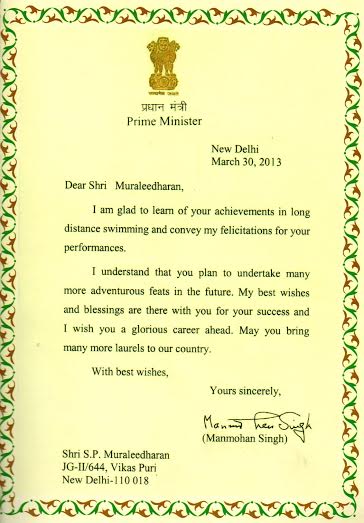 प्रधान मंत्री
Prime Minister
New Delhi
March 30, 2013
Dear Shri Muraleedharan,
I am glad to learn of your achievements in long
distance swimming and convey my felicitations for your
performances.
I understand that you plan to undertake many
more adventurous feats in the future. My best wishes
and blessings are there with you for your success and
I wish you a glorious career ahead. May you bring
many more laurels to our country.
With best wishes,
Yours sincerely,
Manmohan Singh
(Manmohan Singh)
Shri S.P. Muraleedharan
JG-II/644, Vikas Puri
New Delhi-110 018